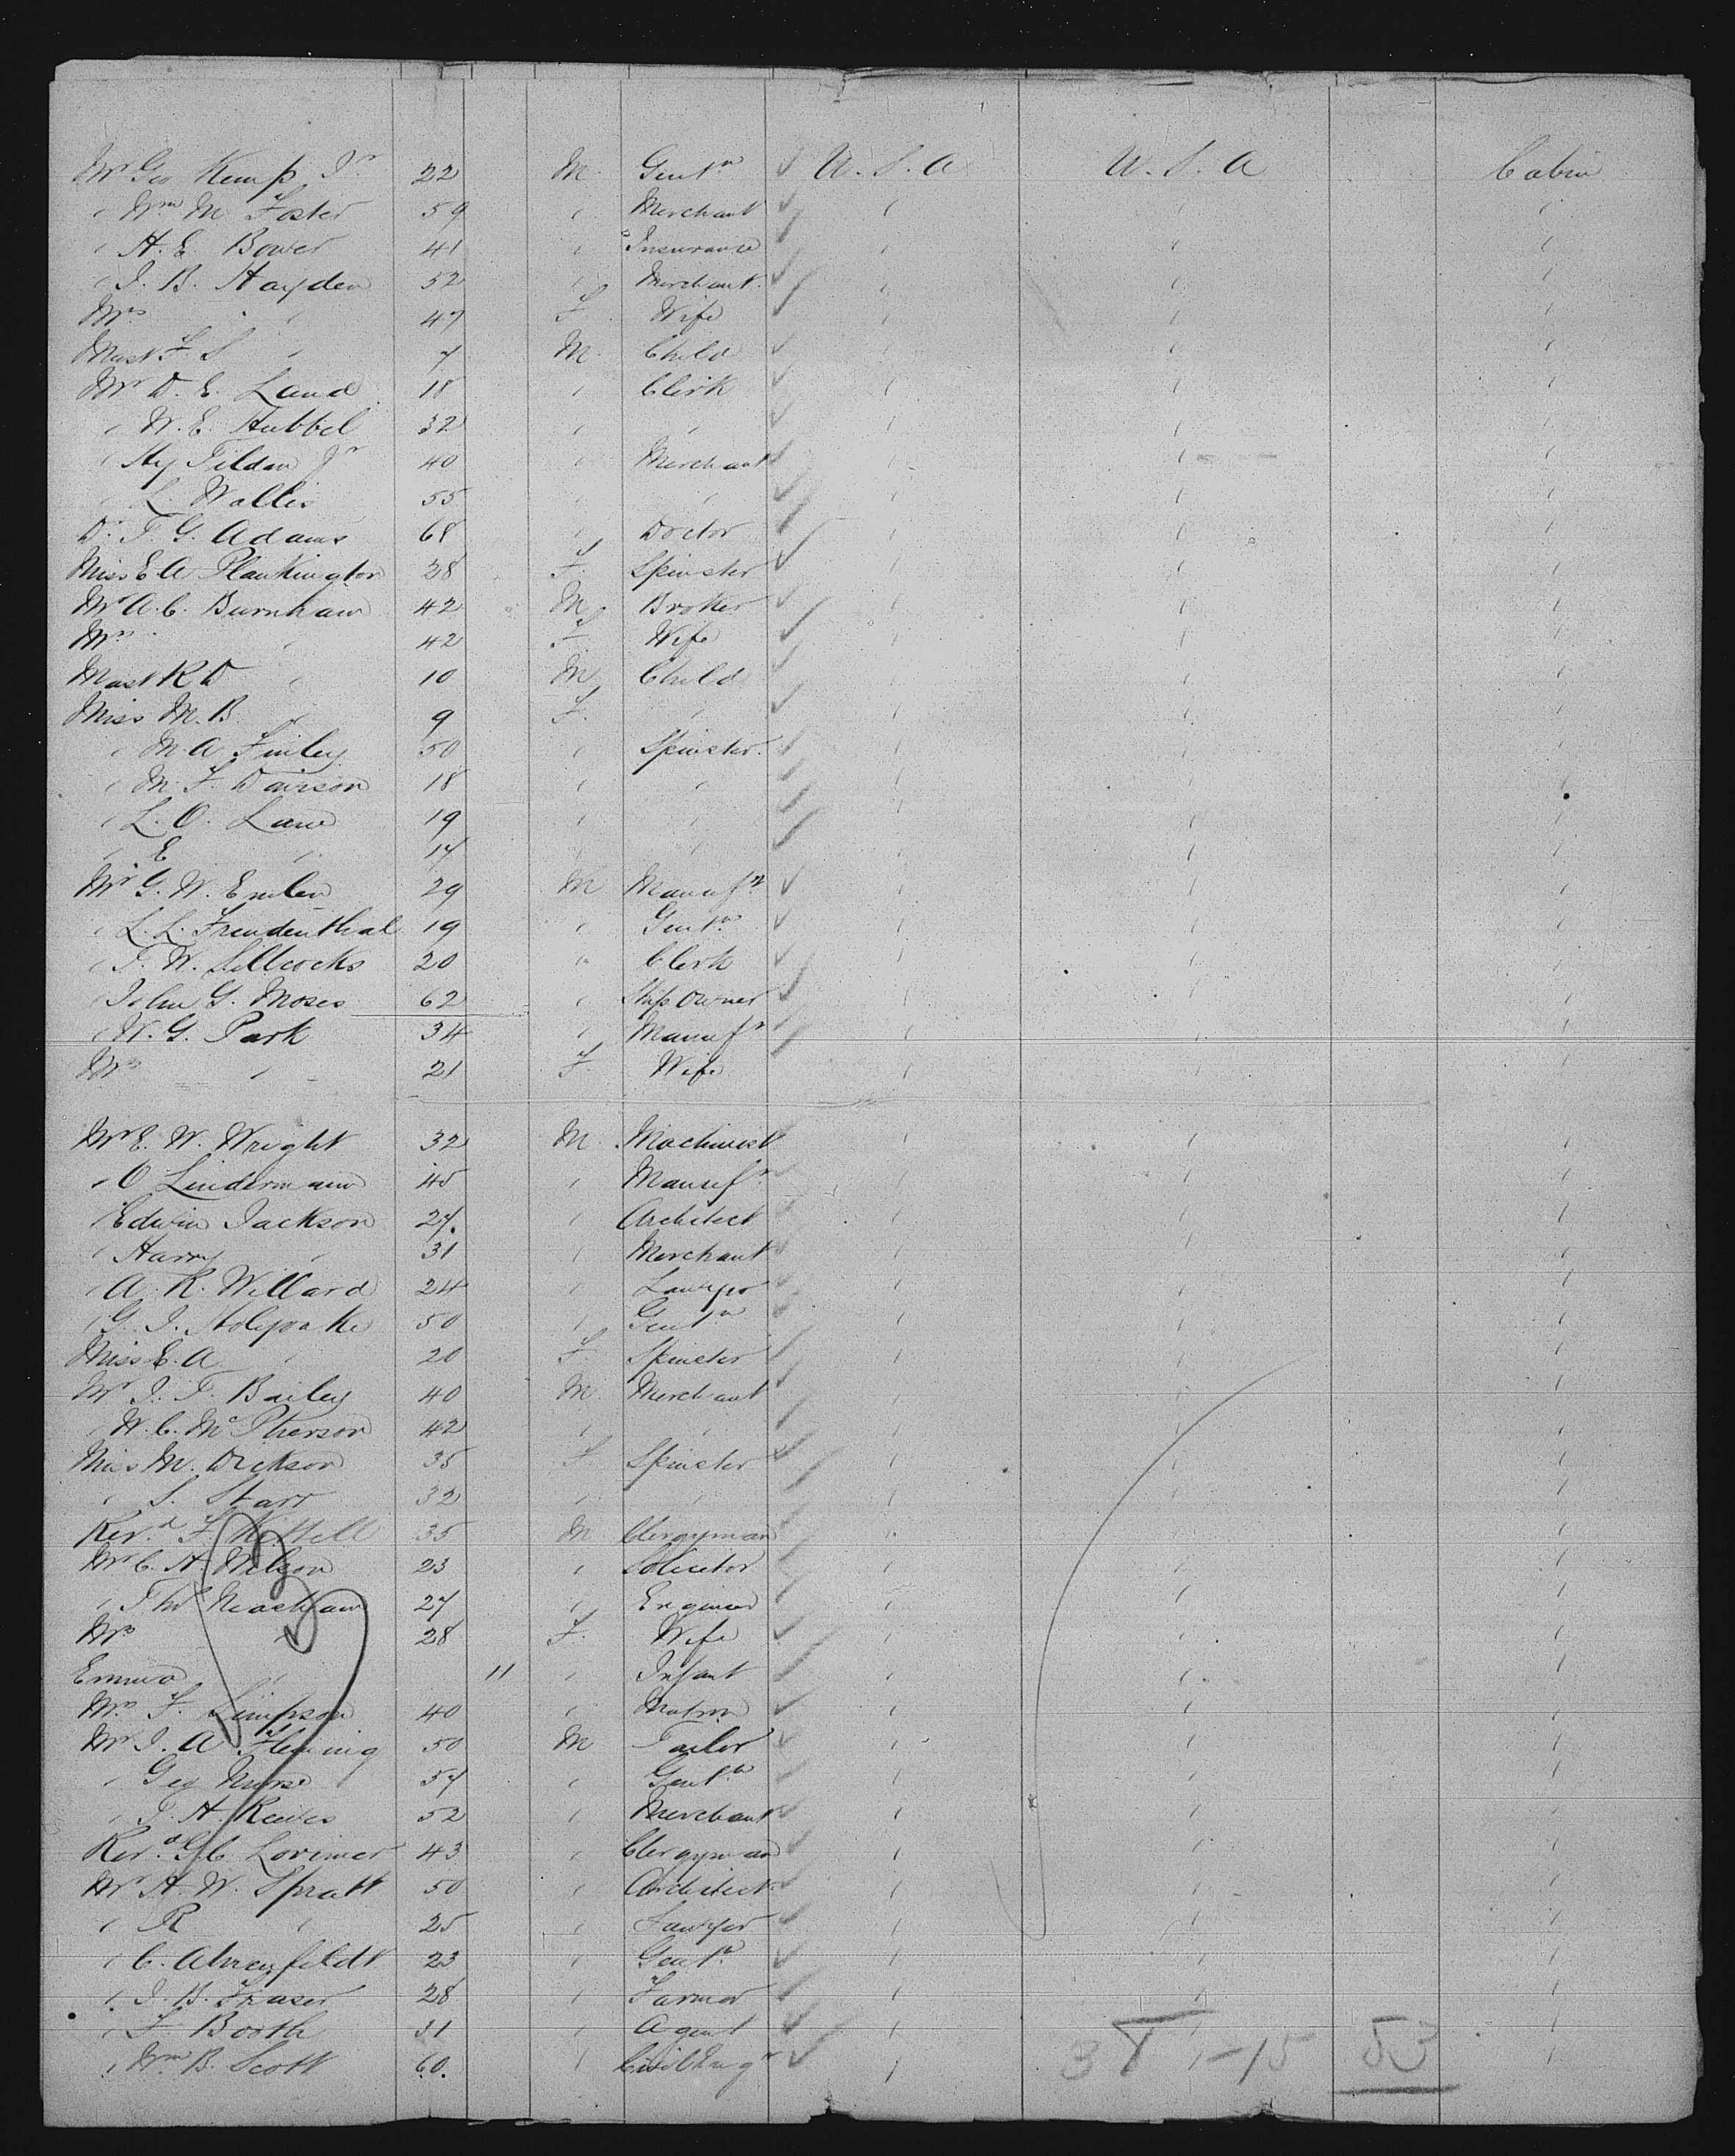 Mr Geo Kemp Jr 22 M Gentn U.S.A U.S.A Cabin
" Wm M Foster 59 " Merchant " " "
" H. E. Bower 41 " Insurance " " "
" J. B. Hayden 52 " Merchant " " "
Mrs " 47 F. Wife " " "
Mast F S " 7 M Child " " "
Mr D. E. Land 18 " Clerk " " "
" W. E. Hubbel 32 " " " " "
" Hy Tilden Jr 40 " Merchant " " "
" L. Wallis 55 " " " " "
Dr. T. G. Adams 68 " Doctor " " "
Miss E A Plankington 28 F. Spinster " " "
Mr A. C. Burnham 42 M Broker " " "
Mrs " 42 F. Wife " " "
Mast R D " 10 M Child " " "
Miss M. B. " 9 F. " " " "
" M. A Finley 50 " Spinster " " "
" M. F. Davison 18 " " " " "
" L. O. Lane 19 " " " " "
" E " 17 " " " " "
Mr G. W. Emlen 29 M Manufr " " "
" L. L. Freudenthal 19 " Gentn " " "
" T. W. Sillcocks 20 " Clerk " " "
" John G. Moses 62 " Ship Owner " " "
" W. G. Park 34 " Manufr " " "
Mrs " 21 F. Wife " " "
Mr E. W. Wright 32 M Machinist " " "
" O Lindermann 45 " Manufr " " "
" Edwin Jackson 27. " Architect " " "
" Harry " 31 " Merchant " " "
" A. R. Willard 24 " Lawyer " " "
" G. J. Holyoake 50 " Gentn " " "
Miss E. A " 20 F. Spinster " " "
Mr J. T. Bailey 40 M Merchant " " "
" W. C. McPherson 42 " " " " "
Miss M. Dickson 35 F Spinster " " "
" S. Starr 32 " " " " "
Revd F. Hill 35 M Clergyman " " "
Mr C. H. Wilson 23 " Solicitor " " "
" Thos 27 " Engineer " " "
Mrs " 28 F. Wife " " "
Emma " 11 " Infant " " "
Mrs F. Simpson 40 " Matron " " "
Mr J. A Fleming 50 M Tailor " " "
" Geo Nurse 57 " Gentn " " "
" T. H. Reeves 52 " Merchant " " "
Revd G. C Lorimer 43 " Clergyman " " "
Mr H. W. Spratt 50 " Architect " " "
" R " 25 " Lawyer " " "
" C. Ahrenfeldt 23 " Gentn " " "
" J. B. Fraser 28 " Farmer " " "
" F Booth 31 " Agent " " "
" Wm B. Scott 60. " Civil Engr " " "
38 - 15 53